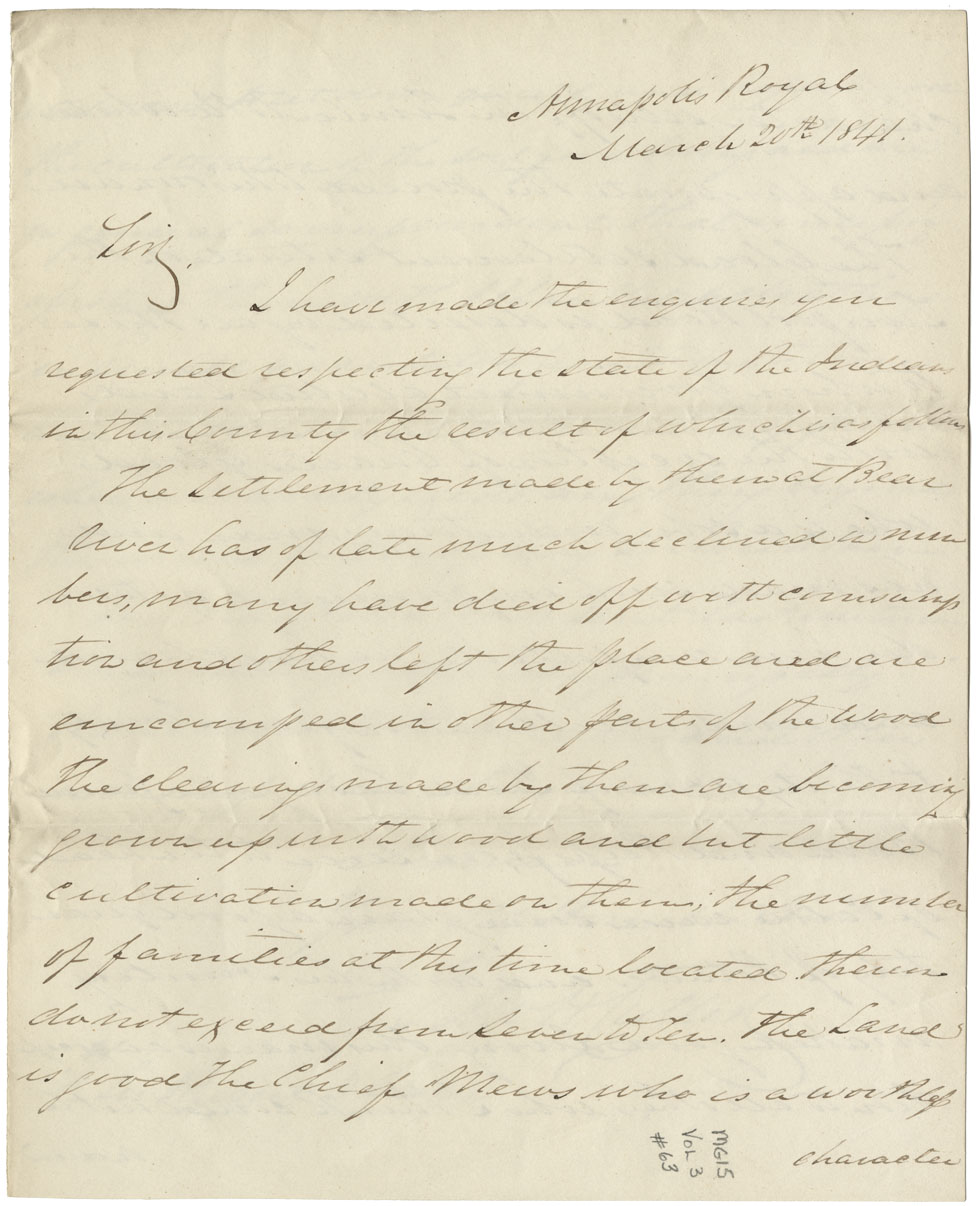 Annapolis Royal
March 20th 1841.
Sir,
I have made the enquiries you
requested respecting the state of the Indians
in this County the result of which is as follows
The Settlement made by them at Bear
River has of late much declined in num
bers, many have died off with consump
tion and others left the place and are
encamped in other parts of the Wood
the clearings made by them are becoming
grown up with wood and but little
cultivation made on them, the number
of families at this time located there
do not exceed from Seven to Ten. The Land
is good The Chief Mews who is a worthless
character
MG15
VOL 3
#63